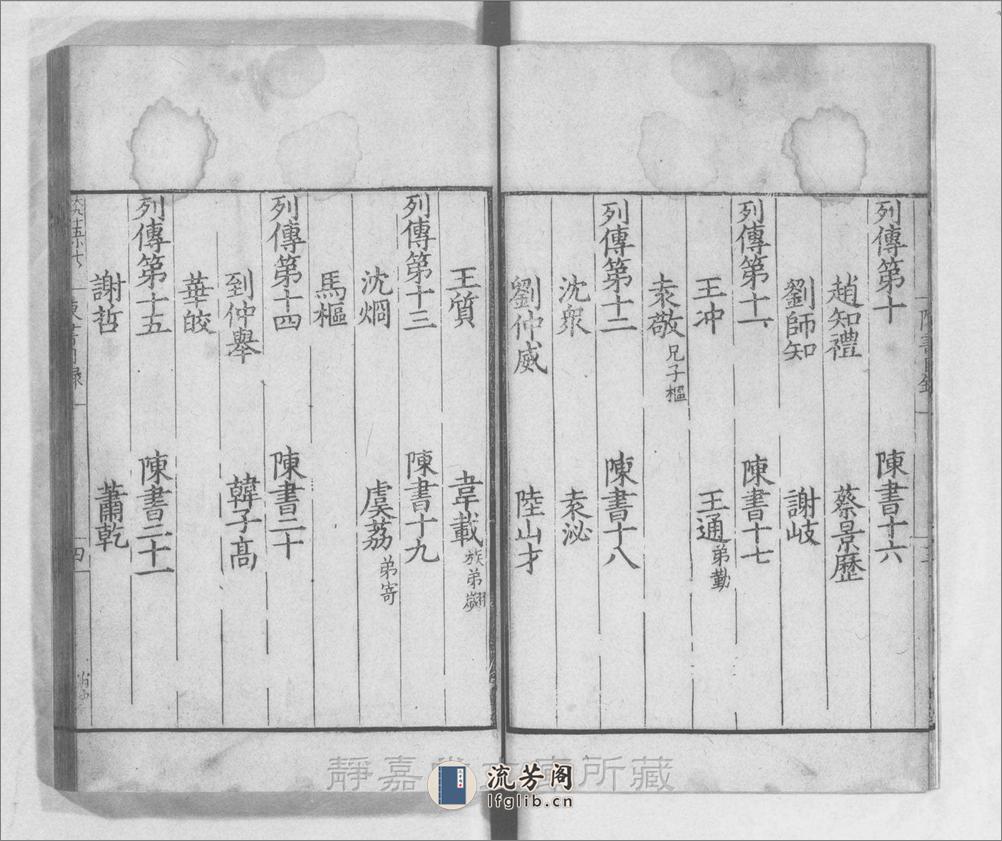 列傳第十 陳書十六
趙知禮 蔡景歷
劉師知 謝岐
列傳第十一 陳書十七
王冲 王通弟勱
袁敬兄子樞
列傳第十二 陳書十八
沈衆 袁泌
劉仲威 陸山才
王質 韋載族弟翽
列傳第十三 陳書十九
沈烱 虞荔弟寄
馬樞
列傳第十四 陳書二十
到仲舉 韓子高
華皎
列傳第十五 陳書二十一
謝哲 蕭乾
四
靜嘉堂文庫所藏
流芳阁
lfglib.cn